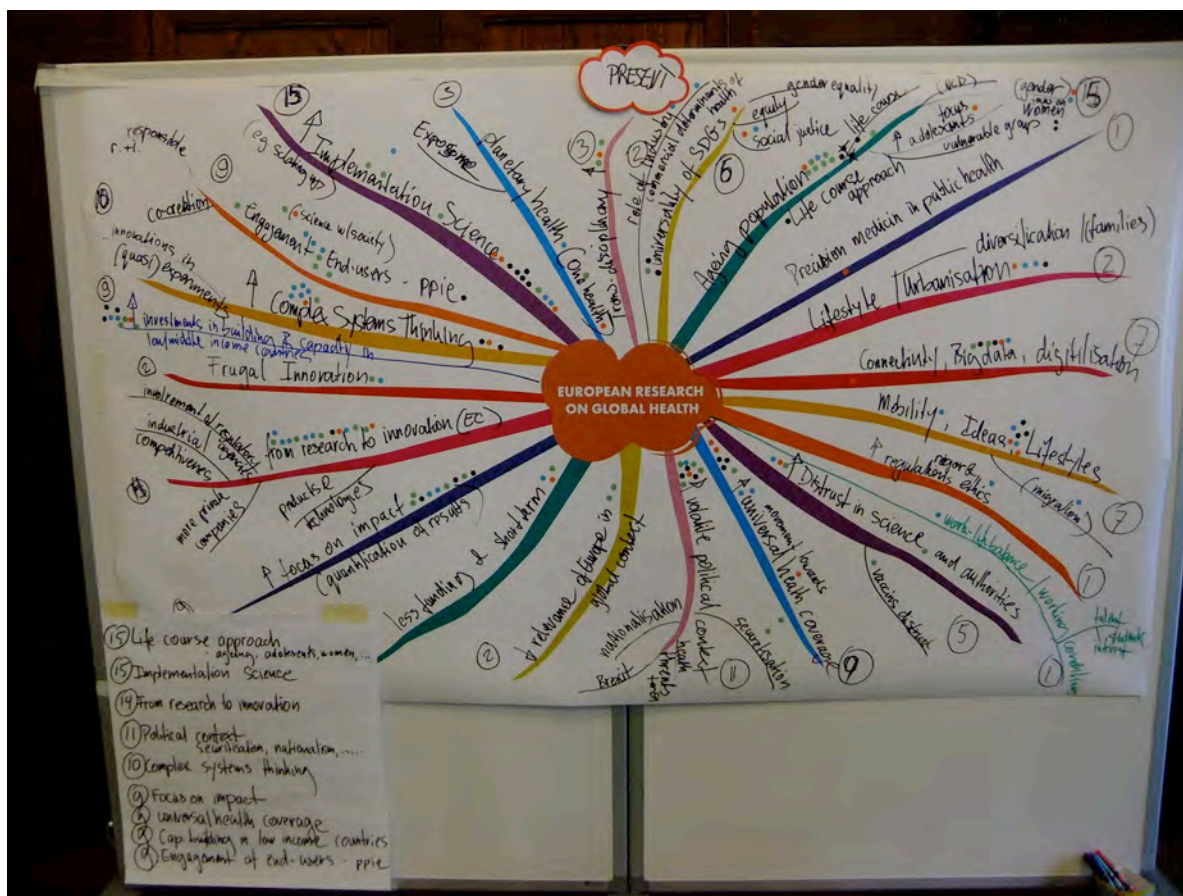 PRESENT
EUROPEAN RESEARCH
ON GLOBAL HEALTH
15
↑ Implementation Science
5
Planetary health (one health)
Exposome
3
↑ Trans-disciplinary
2
role of industry
commercial determinants of
health
universality of SDGs
6
equity
gender equality)
social justice
Ageing population
life course
• Life course
approach
(NCD)
↑ focus
adolescents
vulnerable group
(gender
focus on
women
15
1
Precision medicin in public health
Lifestyle / Urbanisation
diversification /(families)
2
Connectivity, Big data, digitilisation
7
Mobility, Ideas, Lifestyles
(migration)
7
↑ rigor &
regulations ethics
1
work-life balance / working condition
talent
students
1
↑ Distrust in science and authorities
vaccins distrust
5
↑ movement towards
universal health coverage
9
↑ volatile political context
securitisation
nationalisation
Brexit
health
11
↓ relevance of Europe in
global context
2
less funding & short term
↑ focus on impact
(quantification of results)
9
from research to innovation (EC)
products &
technologies
involvement of regulatory
industrial
competitiveness
more private
companies
Frugal Innovation
2
↑ investments in building & capacity in
low/middle income countries
9
↑ Complex Systems Thinking
innovations in
(quasi) experiments
10
Engagement End-users - ppie
(science w/society)
co-creation
9
responsible
r.+i.
15 Life course approach
- ageing, adolescents, women, ...
15 Implementation Science
14 From research to innovation
11 Political context
securitisation, nationalism, .....
10 Complex systems thinking
9 Focus on impact
9 universal health coverage
9 Cap. building in low income countries
9 Engagement of end-users - ppie